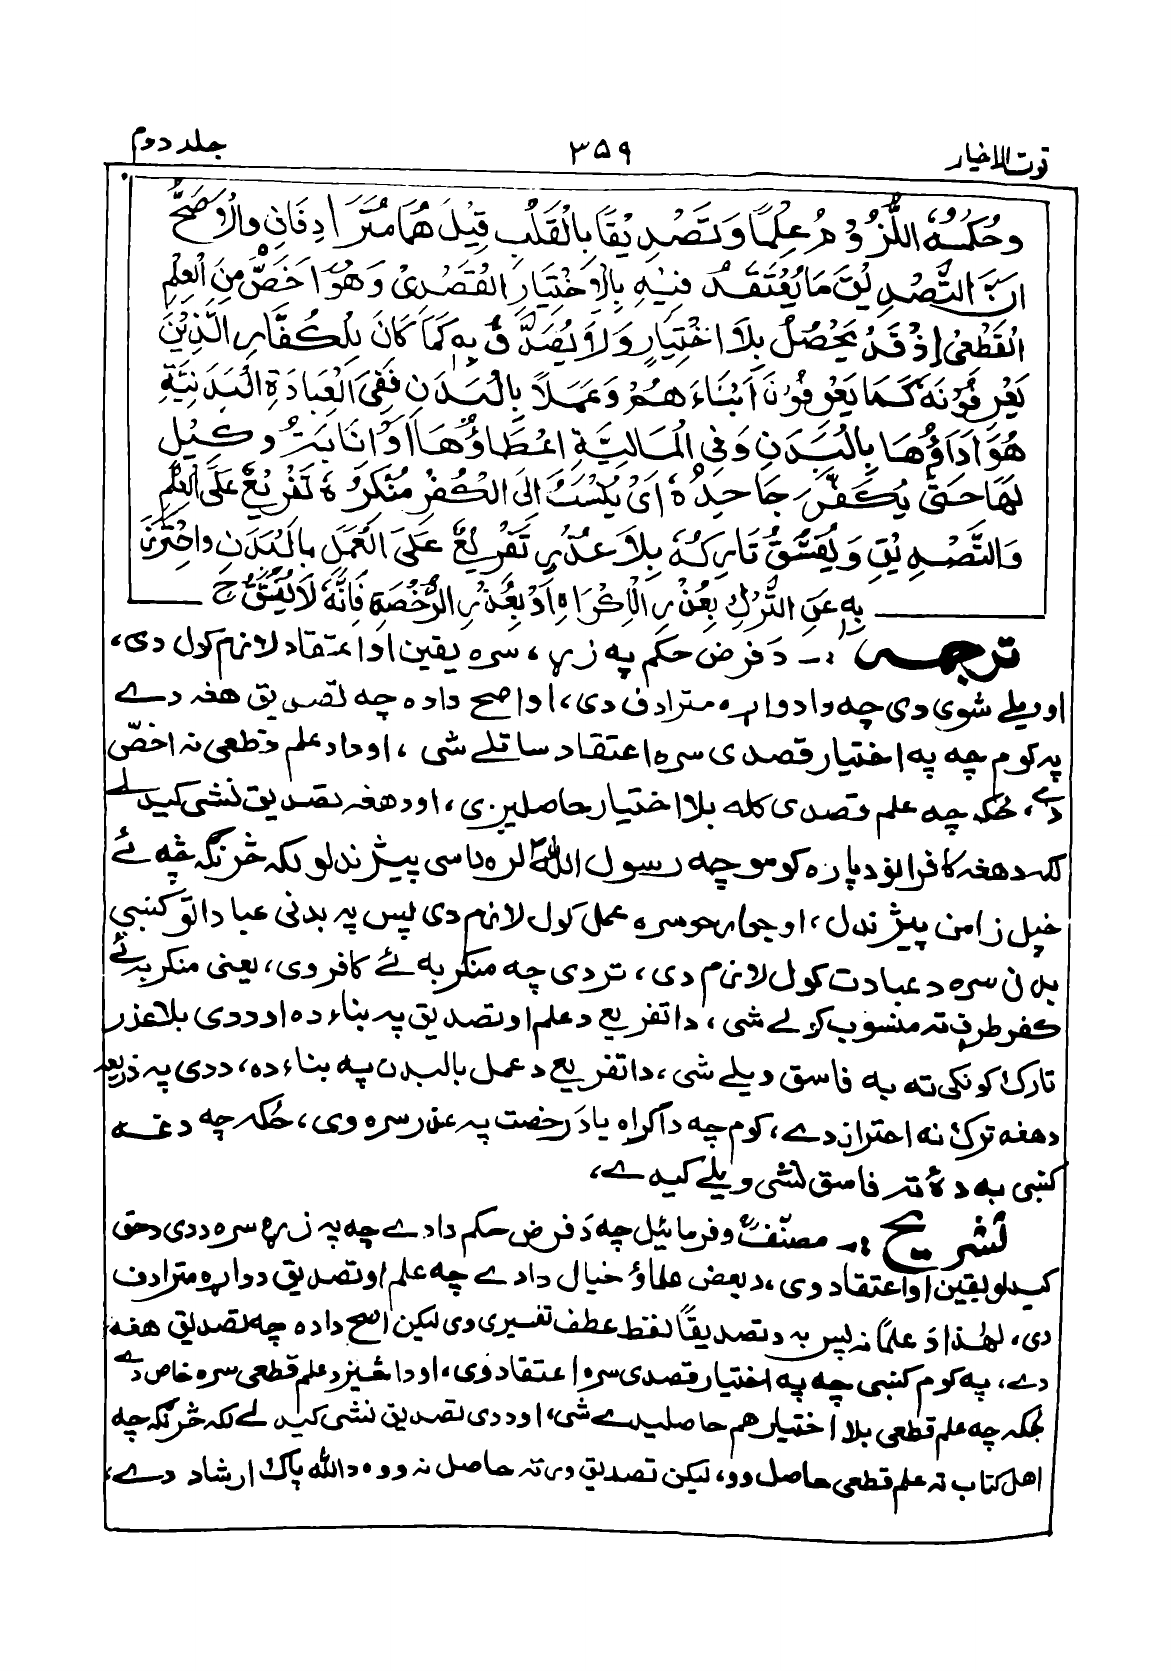 قوت الاخیار ۳۵۹ جلد دوم
وَحُكْمُهُ اللُّزُوْمُ عِلْمًا وَتَصْدِيْقًا بِالْقَلْبِ قِيْلَ هُمَا مُتَرَادِفَانِ وَالْاَصَحُّ
اَنَّ التَّصْدِيْقَ مَا يُعْتَقَدُ فِيْهِ بِالْاِخْتِيَارِ الْقَصْدِيْ وَهُوَ اَخَصُّ مِنَ الْعِلْمِ
الْقَطْعِيْ اِذْ قَدْ يَحْصُلُ بِلَا اخْتِيَارٍ وَلَا يُصَدَّقُ بِهٖ كَمَا كَانَ لِلْكُفَّارِ الَّذِيْنَ
يَعْرِفُوْنَهٗ كَمَا يَعْرِفُوْنَ اَبْنَاءَهُمْ وَعَمَلًا بِالْبَدَنِ فَفِی الْعِبَادَةِ الْبَدَنِيَّةِ
هُوَ اَدَاؤُهَا بِالْبَدَنِ وَفِی الْمَالِيَّةِ اِعْطَاؤُهَا اَوْ اِنَابَةُ وَكِيْلٍ
لَهَا حَتّٰی يُكَفَّرَ جَاحِدُهٗ اَیْ يُنْسَبُ اِلَی الْكُفْرِ مُنْكِرُهٗ تَفْرِيْعٌ عَلَی الْعِلْمِ
وَالتَّصْدِيْقِ وَيُفَسَّقُ تَارِكُهٗ بِلَا عُذْرٍ تَفْرِيْعٌ عَلَی الْعَمَلِ بِالْبَدَنِ وَاحْتَرَزَ
بِهٖ عَنِ التَّرْكِ بِعُذْرِ الْاِكْرَاهِ اَوْ بِعُذْرِ الرُّخْصَةِ فَاِنَّهٗ لَا يُفَسَّقُ ح
ترجمہ :— دَ فرض حکم په زړہ، سرہ یقین او اعتقاد لازم کول دی،
او ویلے شوی دی چه دا دواړہ مترادف دی، او اصح دا دہ چه تصدیق هغه دے
په کوم چه په اختیار قصدی سرہ اعتقاد ساتلے شی، او دا د علم قطعی نه اخصّ
دے، ځکه چه علم قصدی کله بلا اختیار حاصلیږی، او د هغه تصدیق نشی کیدلے
لکه د هغه کافرانو د پارہ کومو چه رسول اللہؐ لرہ داسی پیژندلو لکه څرنګه چه ئے
خپل زامن پیژندل، او جوارحو سرہ عمل کول لازم دی پس په بدنی عباداتو کښی
بدن سرہ د عبادت کول لازم دی، تر دی چه منکر به ئے کافر وی، یعنی منکر به ئے
کفر طرف ته منسوب کړلے شی، دا تفریع د علم او تصدیق په بناء دہ او د دی بلا عذر
تارک کونکی ته به فاسق ویلے شی، دا تفریع د عمل بالبدن په بناء دہ، د دی په ذریعه
د هغه ترک نه احتراز دے، کوم چه د اکراہ یا دَ رخصت په عذر سرہ وی، ځکه چه دغه
کښی به دہ ته فاسق نشی ویلے کیدے،
تشریح :— مصنّفؒ و فرمائیل چه دَ فرض حکم دا دے چه په زړہ سرہ د دی د حق
کیدلو یقین او اعتقاد وی، د بعض علماؤ خیال دا دے چه علم او تصدیق دوارہ مترادف
دی، لهٰذا دَ علمًا نه پس به د تصدیقًا لفظ عطف تفسیری وی لیکن اصح دا دہ چه تصدیق هغه
دے، په کوم کښی چه په اختیار قصدی سرہ اعتقاد وی، او دا څیز د علم قطعی سرہ خاص دے
ځکه چه علم قطعی بلا اختیار هم حاصلیدے شی، او د دی تصدیق نشی کیدلے لکه څرنګه چه
اهل کتاب ته علم قطعی حاصل وو، لیکن تصدیق دی ته حاصل نه وو، د اللہ پاک ارشاد دے،